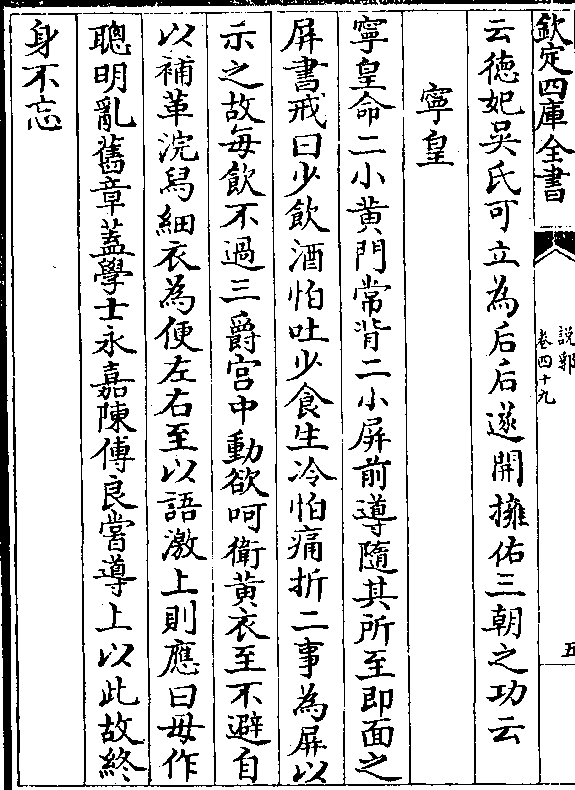 欽定四庫全書
說郛
卷四十九
五
云德妃吴氏可立為后后遂開擁佑三朝之功云
寧皇
寧皇命二小黄門常背二小屏前導隨其所至即面之
屏書戒曰少飲酒怕吐少食生冷怕痛折二事為屏以
示之故每飲不過三爵宫中動欲呵衛黄衣至不避自
以補革浣舄細衣為便左右至以語激上則應曰毋作
聰明亂舊章葢學士永嘉陳傅良嘗導上以此故終
身不忘